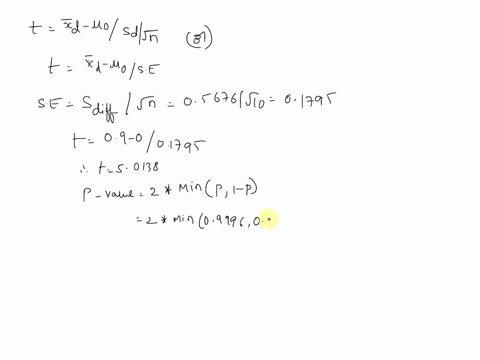 t = x̄d - μ0 / Sd/√n (or)
t = x̄d - μ0 / SE
SE = Sdiff / √n = 0.5676/√10 = 0.1795
t = 0.9-0 / 0.1795
∴ t = 5.0138
P-value = 2 * Min(P, 1-P)
= 2 * Min(0.9996, 0.